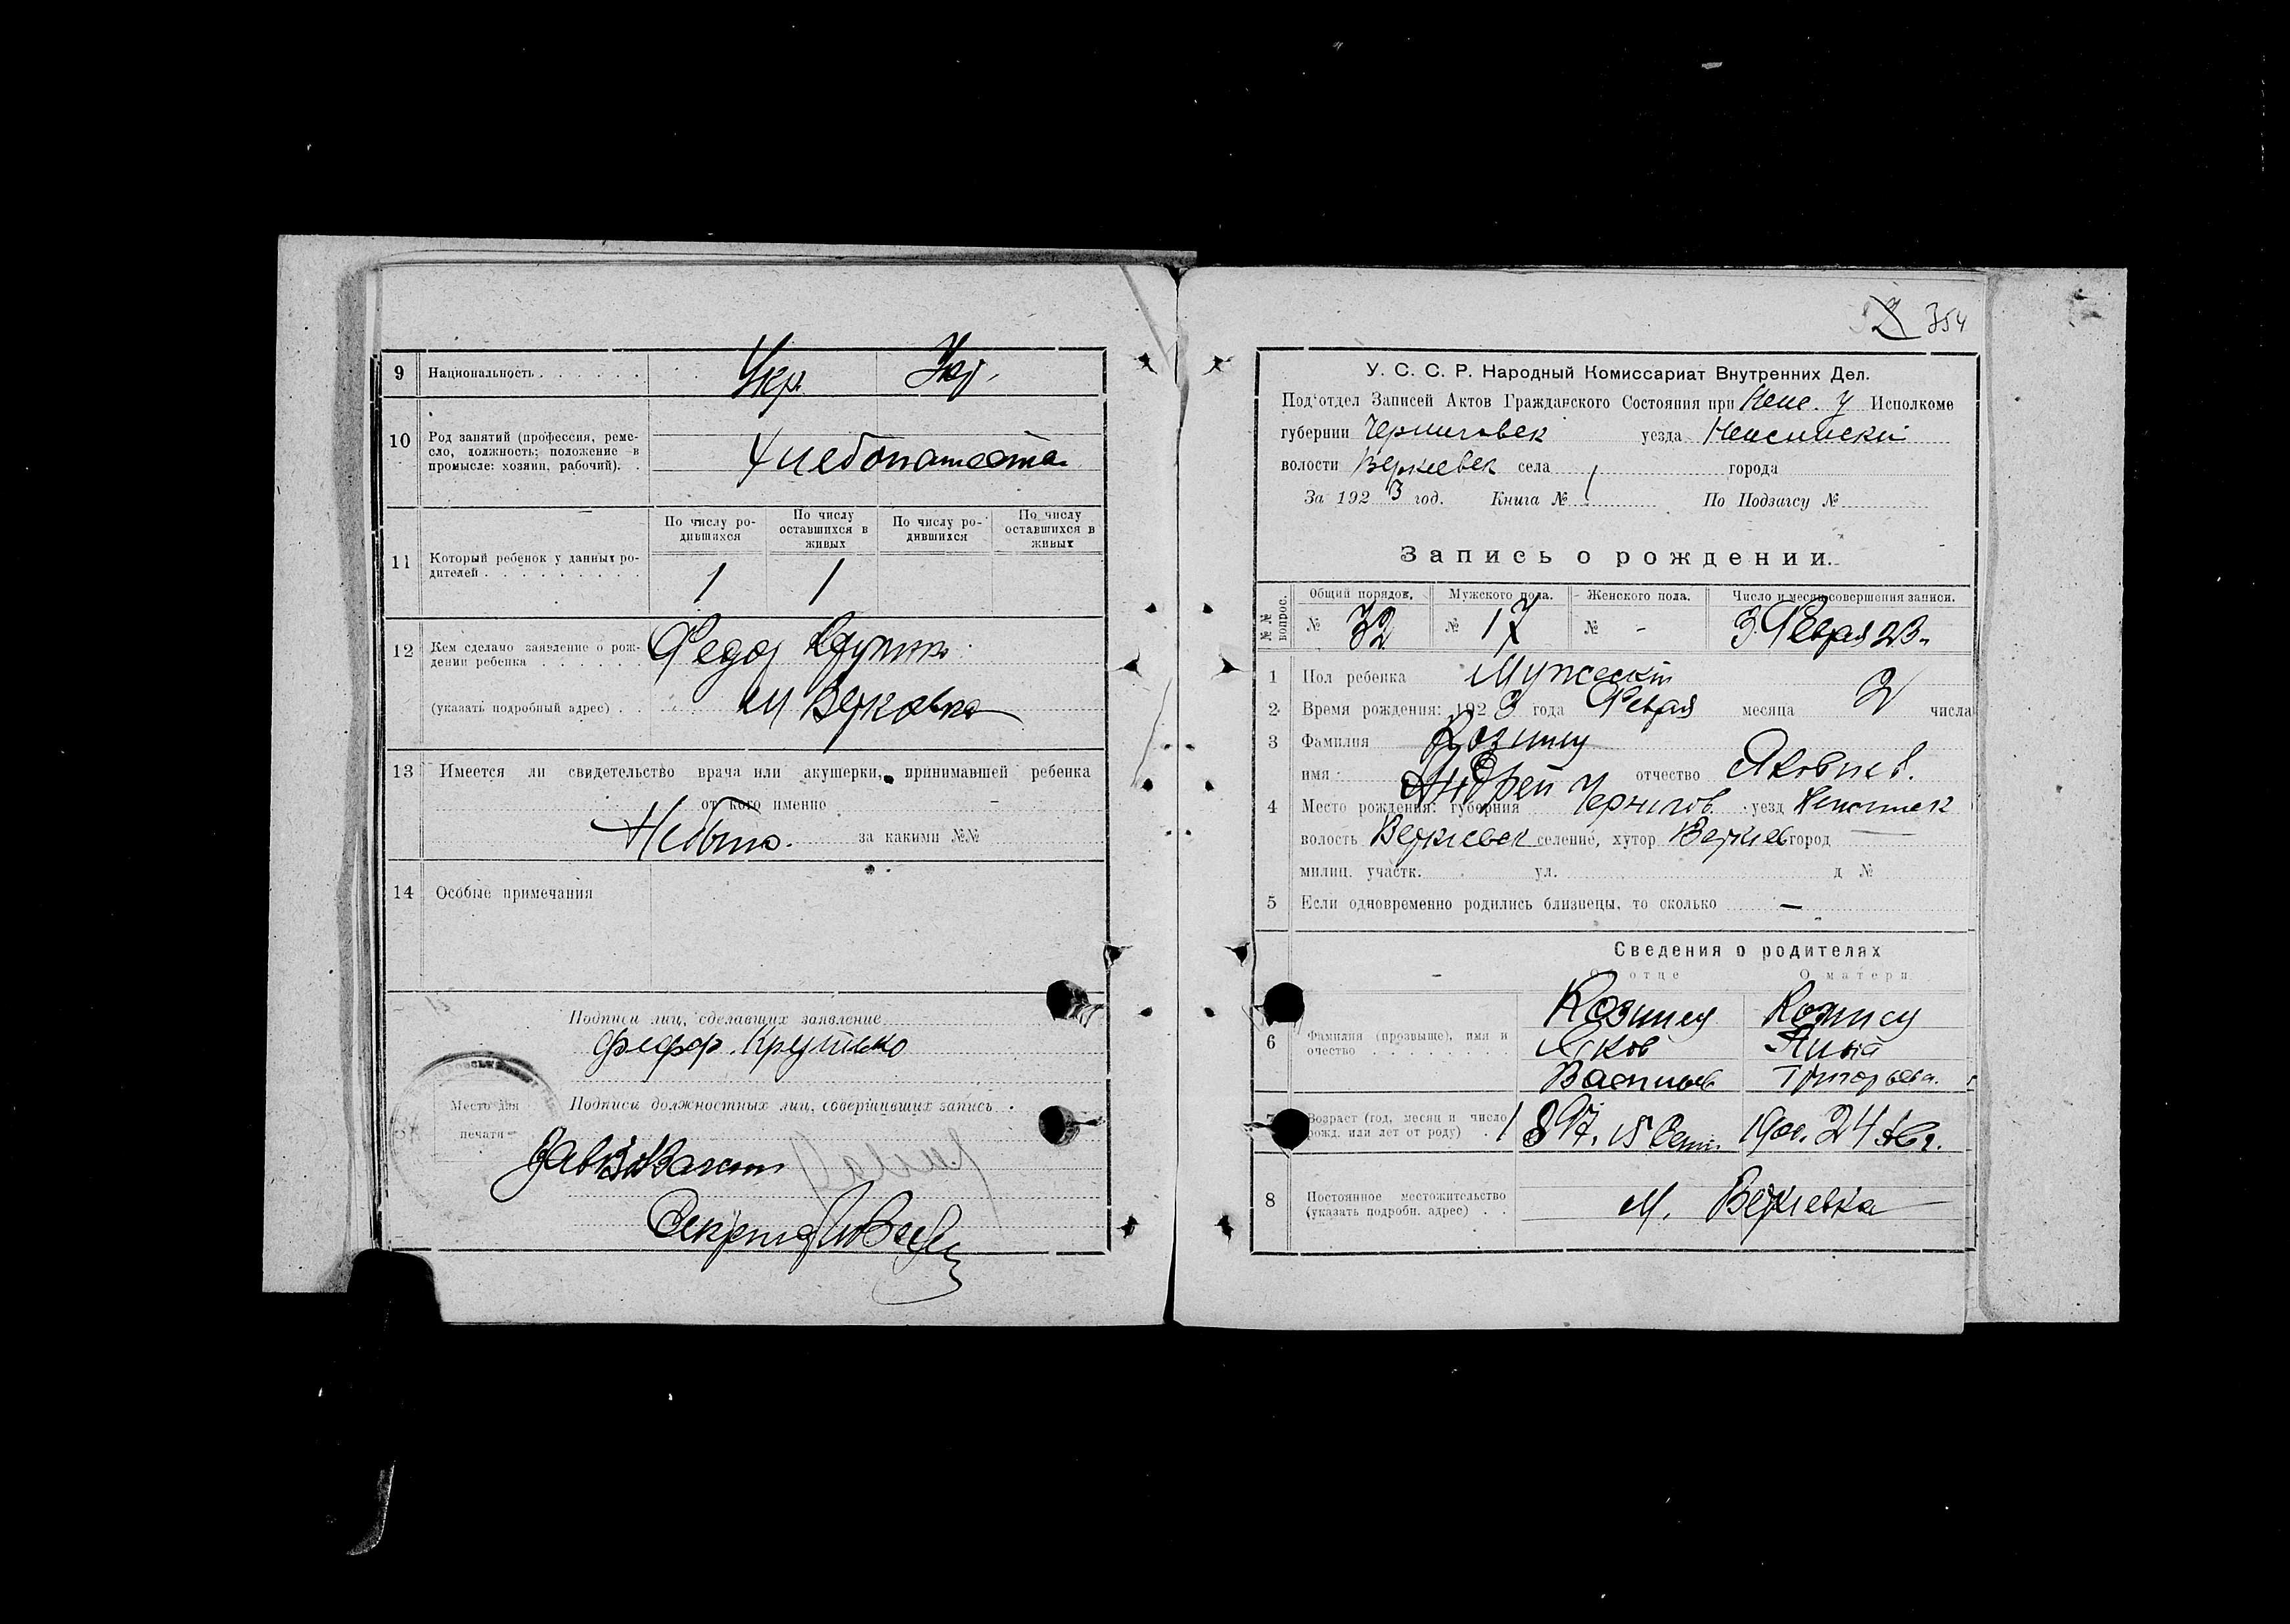 9 Национальность . . . . . . Укр. Укр.
10 Род занятий (профессия, реме-
сло, должность; положение в
промысле: хозяин, рабочий). .
Хлебопашества
11 Который ребенок у данных ро-
дителей . . . . . . . . .
По числу ро-
дившихся
По числу
оставшихся в
живых
По числу ро-
дившихся
По числу
оставшихся в
живых
1 1
12 Кем сделано заявление о рож-
дении ребенка . . . . . .
Федор
(указать подробный адрес) . .
м
13 Имеется ли свидетельство врача или акушерки, принимавшей ребенка
от кого именно
Небыло. за какими №№
14 Особые примечания
Подписи лиц, сделавших заявление
Крутько
Место для
печати
Подписи должностных лиц, совершивших запись .
354
У. С. С. Р. Народный Комиссариат Внутренних Дел.
Под‘отдел Записей Актов Гражданского Состояния при Неж. у Исполкоме
губернии Черниговск уезда Нежинский
волости Веркиевск села города
За 192 3 год. Книга № По Подзагсу №
Запись о рождении.
№№ вопрос.
Общий порядов. Мужского пола. Женского пола. Число и месяц совершения записи.
№ 32 № 17 № - 3 Февраля 23.
1 Пол ребенка Мужеский
2 Время рождения: 192 3 года Февраля месяца 2 числа
3 Фамилия
имя Андрей отчество Яковлев.
4 Место рождения: губерния Чернигов. уезд Нежинск
волость Веркиевск селение, хутор Веркиев город
милиц. участк. ул. д №
5 Если одновременно родились близнецы, то сколько —
Сведения о родителях
О отце О матери
6 Фамилия (прозвыще), имя и
очество . . . . . . . .
Яков
Васильев Григорьева.
Возраст (год, месяц и число
рожд. или лет от роду) .
1897. 15 Сент. 24
8 Постоянное местожительство
(указать подробн. адрес) . .
м. Веркиевка